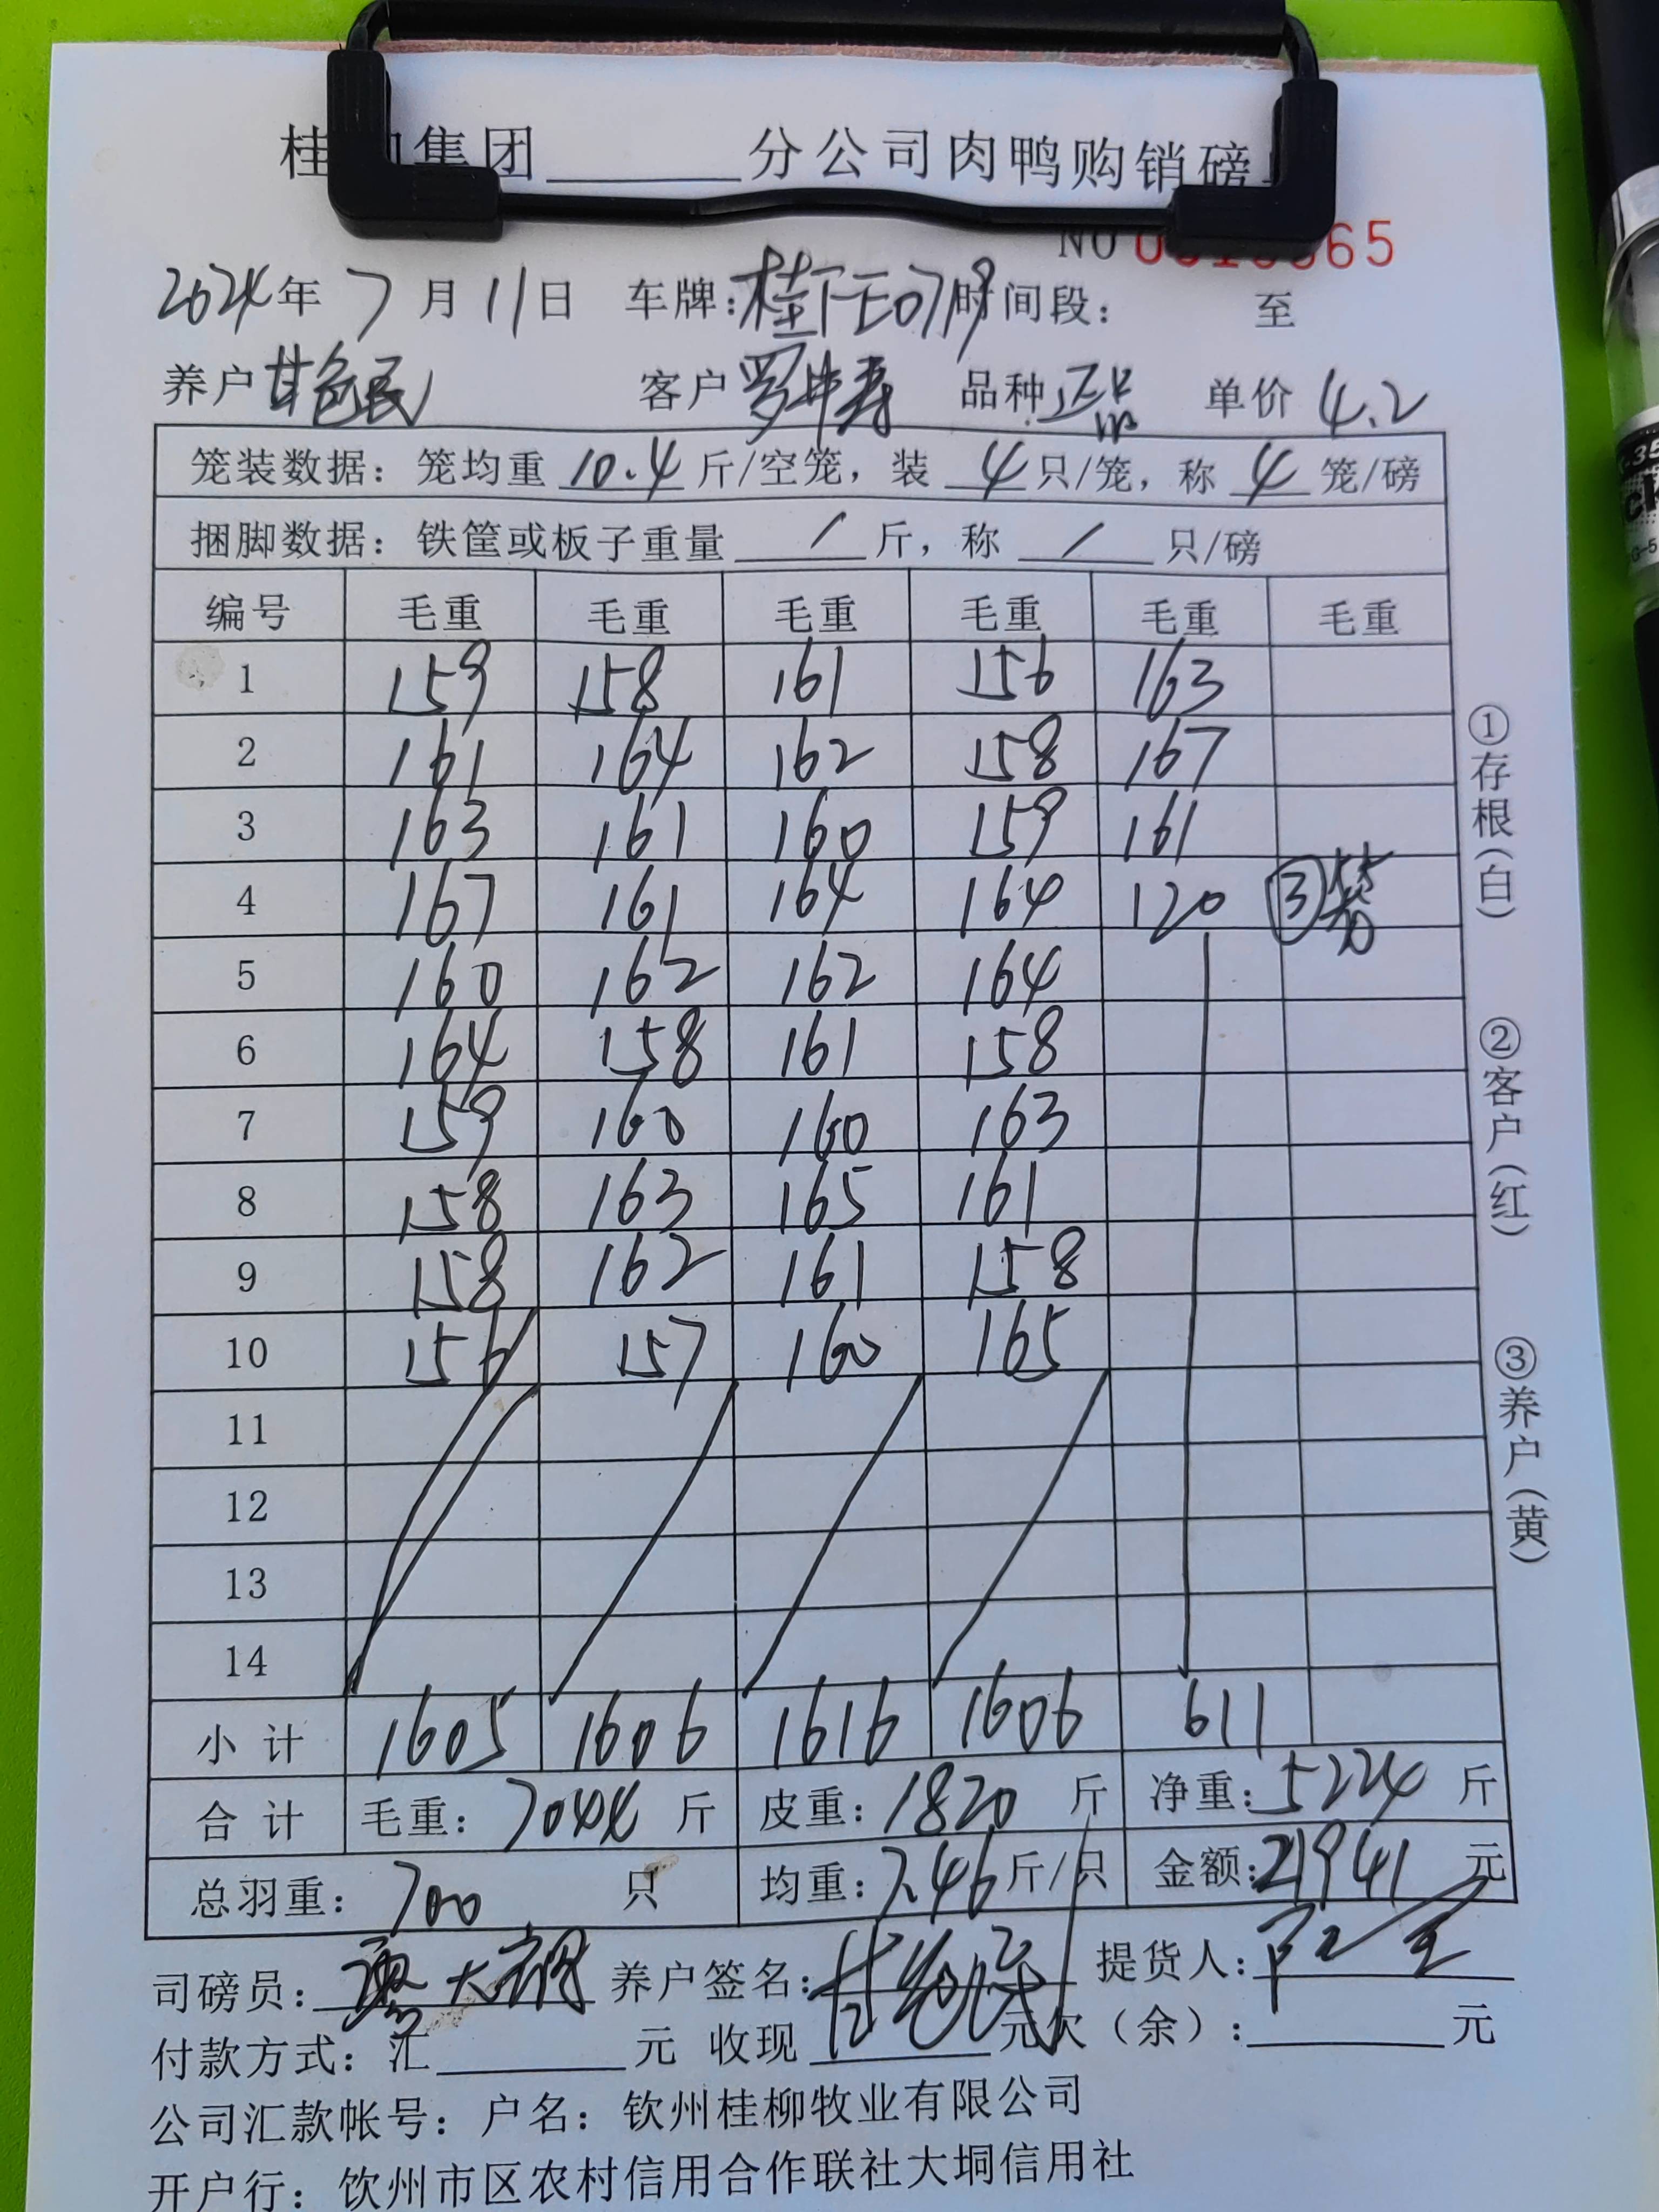 桂 集团______分公司肉鸭购销磅
NO 65
2024年 7 月 11 日 车牌: 时间段: 至
养户 甘 民 客户 罗 寿 品种 正品 单价 4.2
笼装数据: 笼均重 10.4 斤/空笼, 装 4 只/笼, 称 4 笼/磅
捆脚数据: 铁筐或板子重量 / 斤, 称 / 只/磅
编号 毛重 毛重 毛重 毛重 毛重 毛重
1 159 158 161 156 163
2 161 164 162 158 167
3 163 161 160 159 161
4 167 161 164 164 120 ③
5 160 162 162 164
6 164 158 161 158
7 159 160 160 163
8 158 163 165 161
9 158 162 161 158
10 156 157 160 165
11
12
13
14
小计 1605 1606 1616 1606 611
合计 毛重: 7044 斤 皮重: 1820 斤 净重: 5224 斤
总羽重: 700 只 均重: 7.46 斤/只 金额: 21941 元
司磅员: 大 养户签名: 甘 民 提货人:
付款方式: 汇______元 收现______元欠(余):______元
公司汇款帐号: 户名: 钦州桂柳牧业有限公司
开户行: 钦州市区农村信用合作联社大垌信用社
①存根(白)
②客户(红)
③养户(黄)